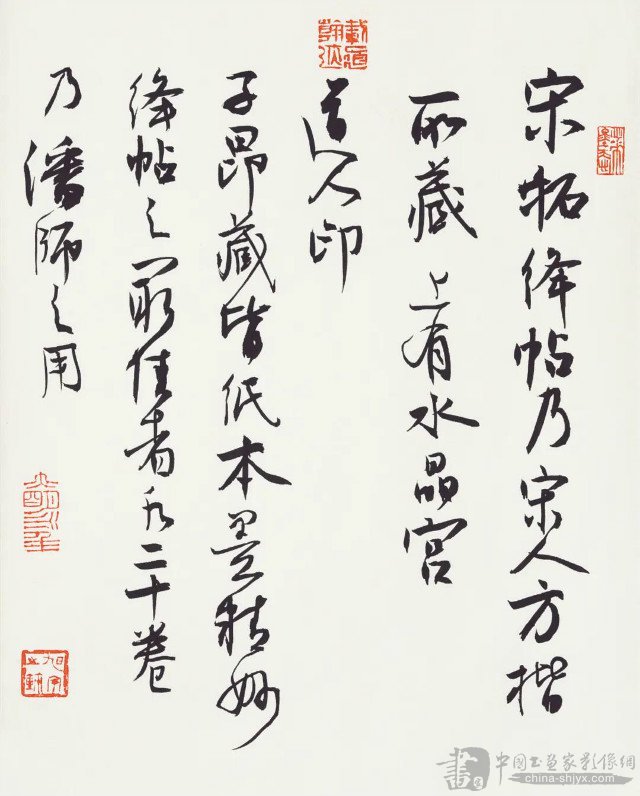 宋拓绛帖乃宋人方楷
所藏上有水晶宫
道人印
子昂藏皆纸本墨精妙
绛帖之最佳者凡二十卷
乃潘师之用
中國书画家影像網
china-shjyx.com